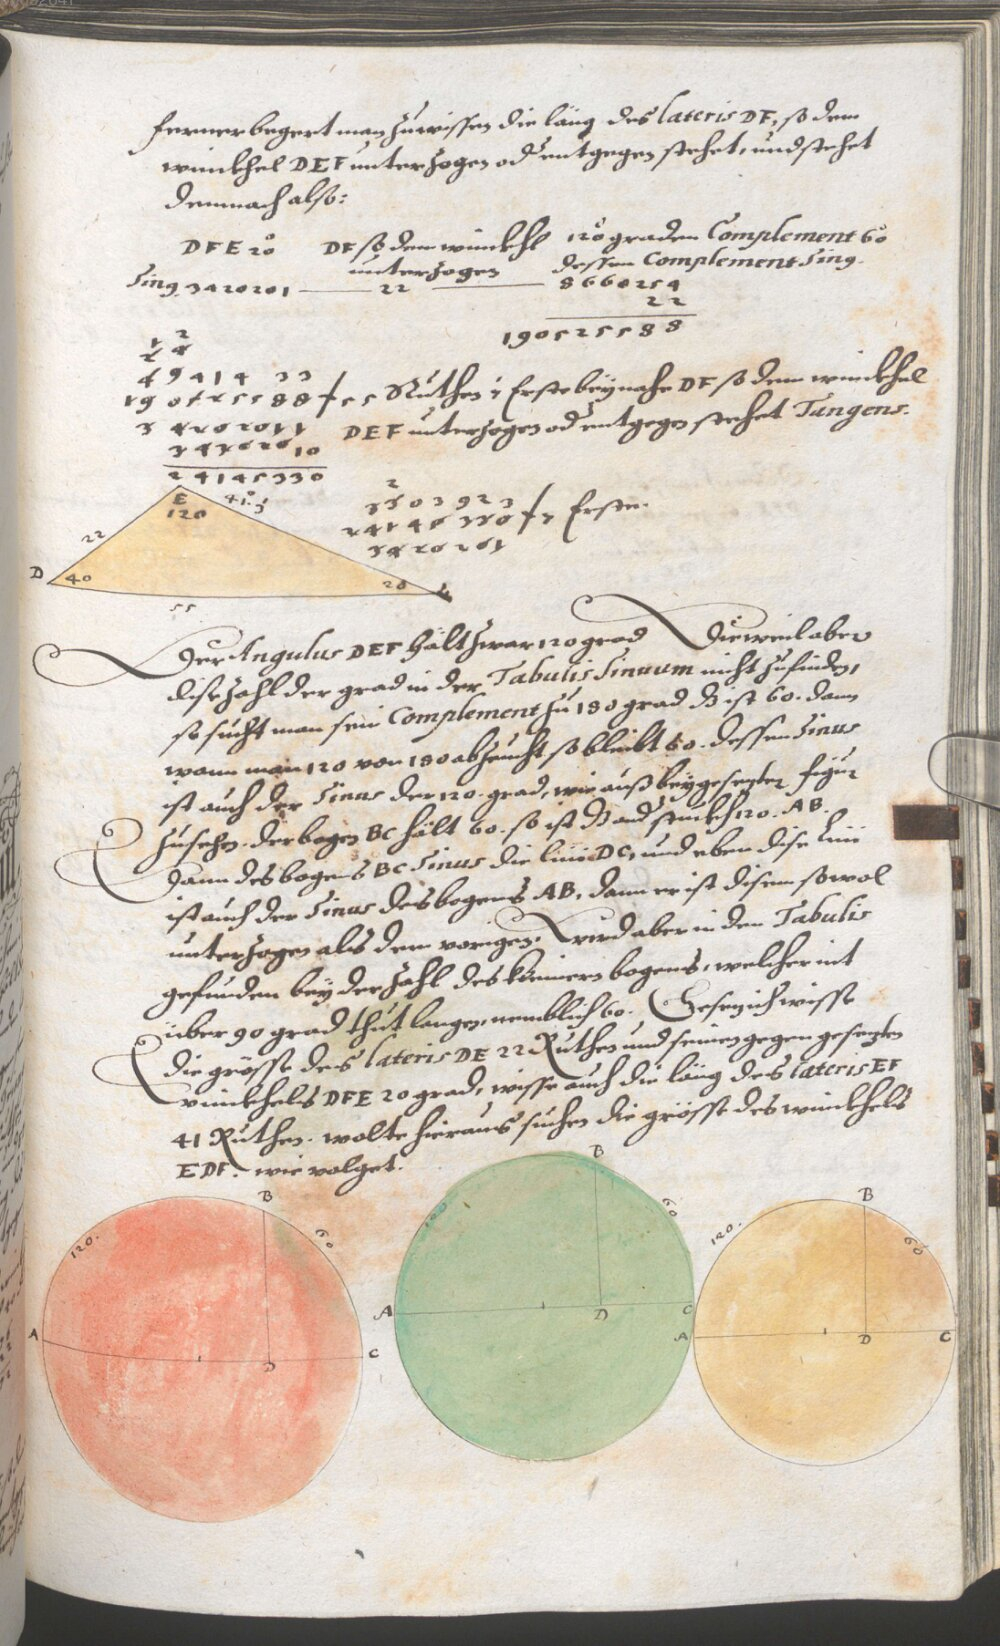 ferner begert man zuwissen die läng des lateris DF, so dem
winckhel DEF unterzogen od entgegen stehet, und stehet
demnach also:
DFE 20 DF so dem winckhl 120 graden Complement 60
unterzogen dessen Complement Sing.
Sing. 3420201 22 8660254
22
190525588
2
49414 33
190525588 f 55 Ruthen 7 Erste beynahe DF so dem winckhel
DEF unterzogen od entgegen stehet Tangens.
3420201
24145330
E
120
22
41.3
D 40 20
55
2
f 7 Erste.
3420201
Der Angulus DEF hält zwar 120 grad Dieweil aber
dise zahl der grad in der Tabulis Sinuum nicht zufinden,
so sucht man sein Complement zu 180 grad ds ist 60. dann
wann man 120 von 180 abzeucht so bleibt 60. dessen Sinus
ist auch der Sinus der 120. grad, wie auß beygesezter figur
zusehen. der bogen BC hält 60. so ist ds and stuckh 120. AB.
Dann des bogens BC Sinus die lini DC, und eben dise lini
ist auch der Sinus des bogens AB, dann er ist disem sowol
unterzogen als dem vorigen. Wird aber in den Tabulis
gefunden bey der zahl des kleinern bogens, welcher nit
über 90 grad thut langen, nemblich 60. Gesezt ich wisse
die grösse des lateris DE 22 Ruthen und seines gegen gesezten
winckhels DFE 20 grad, wisse auch die läng des lateris EF
41 Ruthen. wolte hieraus suchen die grösse des winckhels
EDF. wie volget.
B
120. 60
A D C
B
120 60
A D C
B
120. 60
A D C